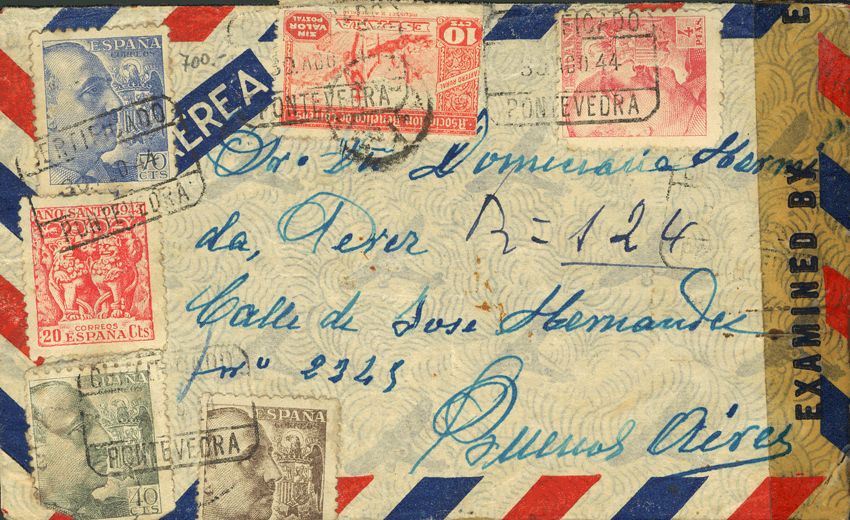 ESPAÑA
CORREOS
40 CTS
700.-
CERTIFICADO
PONTEVEDRA
AEREA
10 CTS
SIN VALOR POSTAL
30 AGO
PONTEVEDRA
CERTIFICADO
30 AGO 44
PONTEVEDRA
4 PTAS
E
EXAMINED BY
Sr. Dn Domiciana Hermi
da, Perez R=124
Calle de Jose Hernandez
nº 2345
Buenos Aires
AÑO SANTO 1943
CORREOS
20 ESPAÑA Cts
ESPAÑA
CERTIFICADO
PONTEVEDRA
40 CTS
ESPAÑA